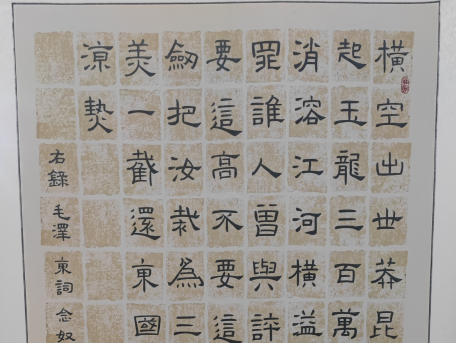 橫空出世莽昆
起玉龍三百萬
消溶江河橫溢
罪誰人曾與評
要這高不要這
劒把汝裁為三
美一截還東國
涼熱
右錄毛澤東詞念奴